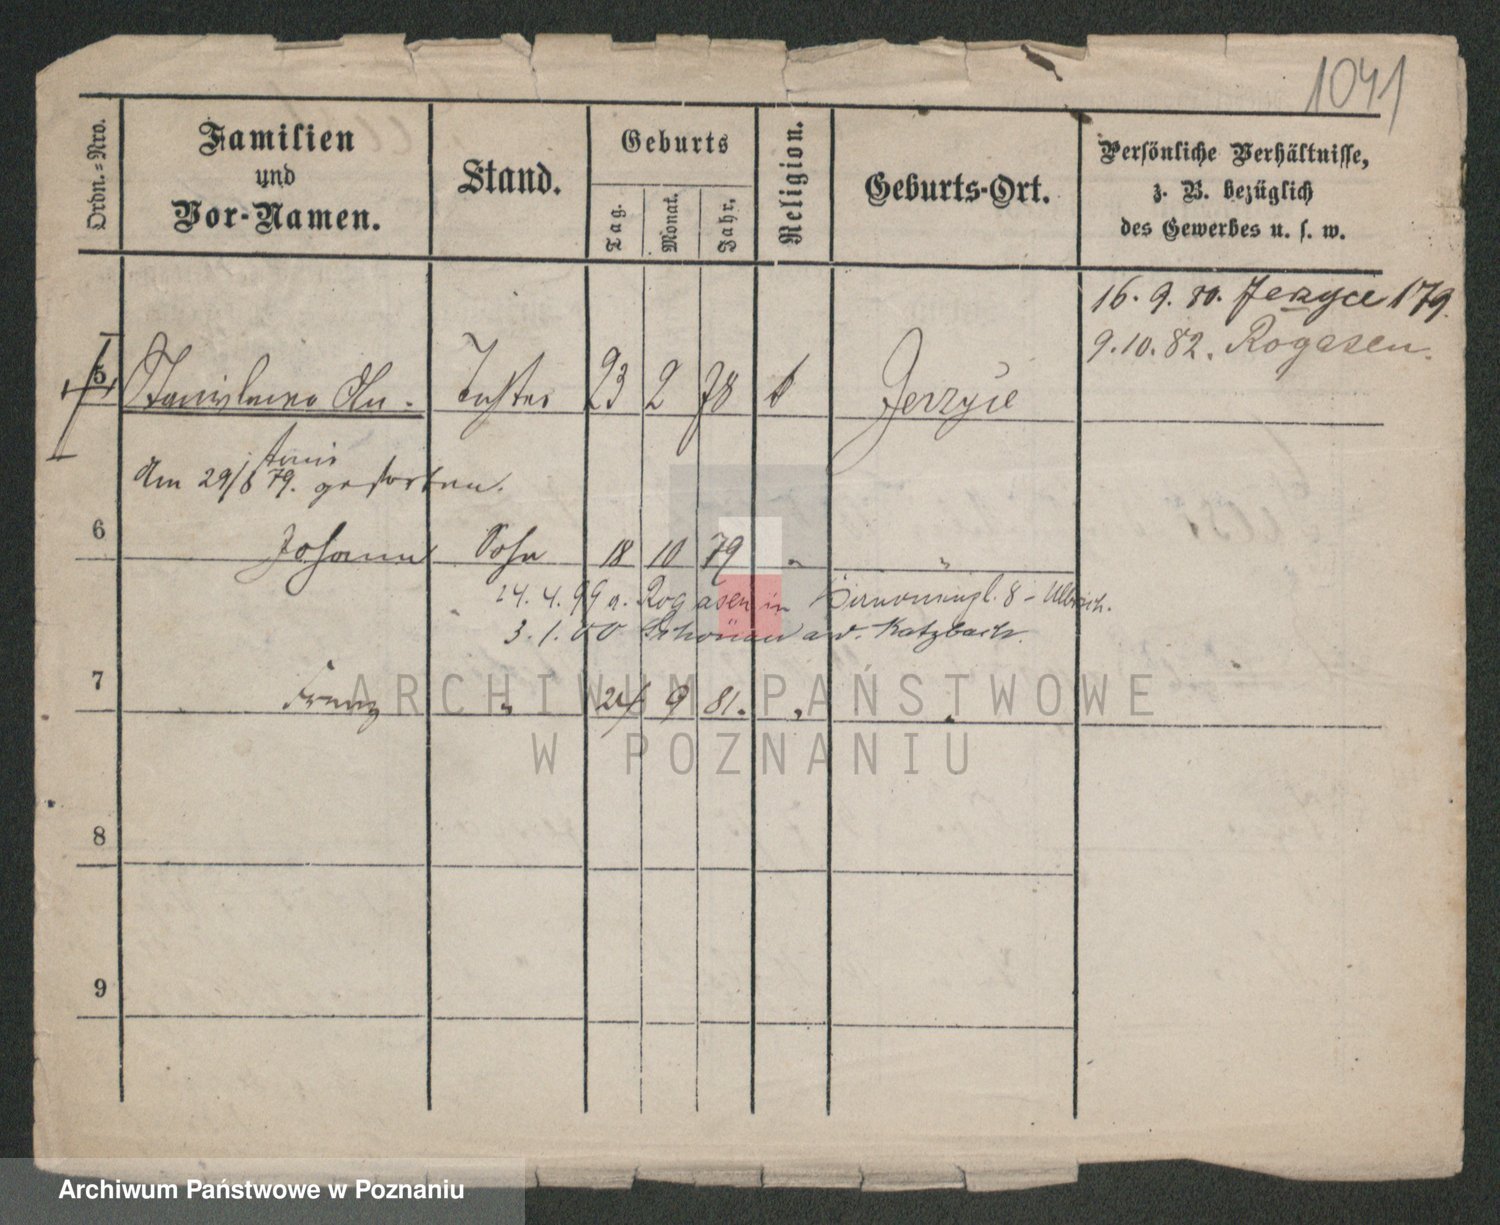 1041
Ordn.-Nro.
Familien
und
Vor-Namen.
Stand.
Geburts
Tag.
Monat.
Jahr.
Religion.
Geburts-Ort.
Persönliche Verhältnisse,
z. B. bezüglich
des Gewerbes u. s. w.
16. 9. 80. Jerzyce 179.
9. 10. 82. Rogasen.
5 Stanislawa An- Tochter 23 2 78 k Jerzyce
tonie
Am 29/6 79. gestorben.
6 Johann Sohn 18 10 79 " "
24. 4. 99 a. Rogasen in 8 - Ulbrich.
3. 1. 00 Schönau a. d. Katzbach.
7 Franz " 24 9 81. " "
8
9
ARCHIWUM PAŃSTWOWE
W POZNANIU
Archiwum Państwowe w Poznaniu